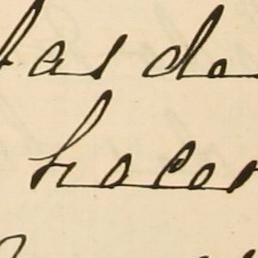 tas de
hacer